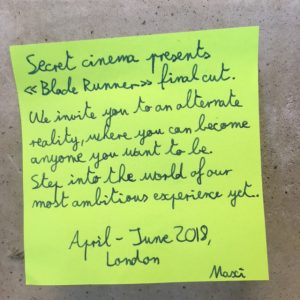 Secret cinema presents
<<Blade Runner>> final cut.
We invite you to an alternate
reality, where you can become
anyone you want to be.
Step into the world of our
most ambitious experience yet.
April - June 2018,
London
Maxi